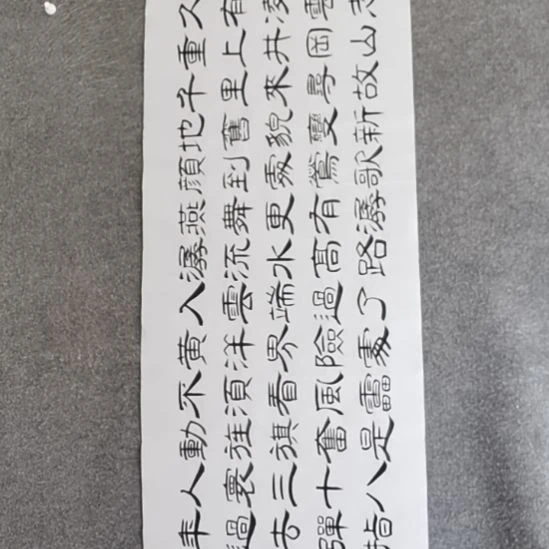 久有凌雲志
重上井岡山
千里來尋故
地舊貌變新
顏到處鶯歌
燕舞更有潺
潺流水高路
入雲端過了
黃洋界險處
不須看風雷
動旌旗奮是
人寰三十八
年過去彈指